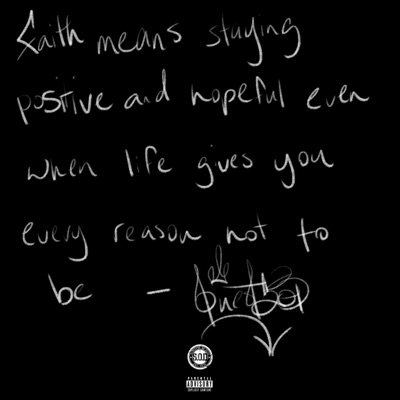 faith means staying
positive and hopeful even
when life gives you
every reason not to
be –
PARENTAL
ADVISORY
EXPLICIT CONTENT